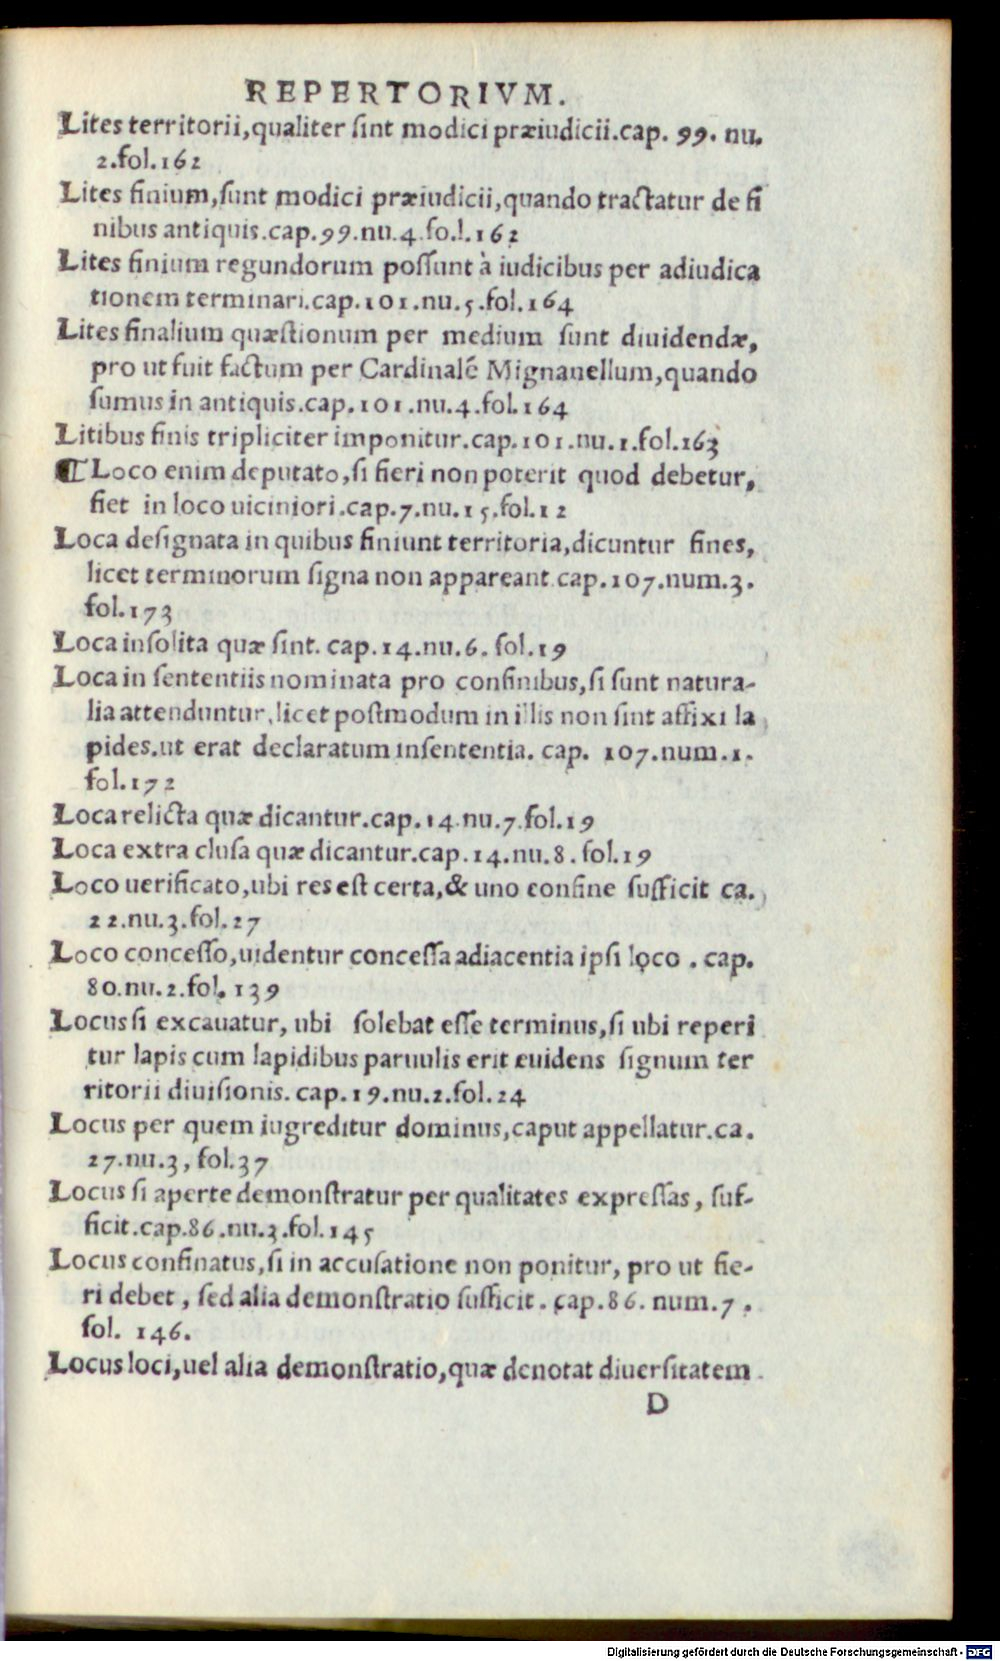 REPERTORIVM.
Lites territorii,qualiter ſint modici præiudicii.cap. 99. nu.
2.fol.162
Lites finium,ſunt modici præiudicii,quando tractatur de fi
nibus antiquis.cap.99.nu.4.fo.l.162
Lites finium regundorum poſſunt à iudicibus per adiudica
tionem terminari.cap.101.nu.5.fol.164
Lites finalium quæſtionum per medium ſunt diuidendæ,
pro ut fuit factum per Cardinalē Mignanellum,quando
ſumus in antiquis.cap.101.nu.4.fol.164
Litibus finis tripliciter imponitur.cap.101.nu.1.fol.163
¶ Loco enim deputato,ſi fieri non poterit quod debetur,
fiet in loco uiciniori.cap.7.nu.15.fol.12
Loca deſignata in quibus finiunt territoria,dicuntur fines,
licet terminorum ſigna non appareant.cap.107.num.3.
fol.173
Loca inſolita quæ ſint. cap.14.nu.6. fol.19
Loca in ſententiis nominata pro confinibus,ſi ſunt natura-
lia attenduntur,licet poſtmodum in illis non ſint affixi la
pides.ut erat declaratum inſententia. cap. 107.num.1.
fol.172
Loca relicta quæ dicantur.cap.14.nu.7.fol.19
Loca extra cluſa quæ dicantur.cap.14.nu.8. fol.19
Loco uerificato,ubi res eſt certa,& uno confine ſufficit ca.
22.nu.3.fol.27
Loco conceſſo,uidentur conceſſa adiacentia ipſi loco . cap.
80.nu.2.fol.139
Locus ſi excauatur, ubi ſolebat eſſe terminus,ſi ubi reperi
tur lapis cum lapidibus paruulis erit euidens ſignum ter
ritorii diuiſionis. cap.19.nu.2.fol.24
Locus per quem iugreditur dominus,caput appellatur.ca.
27.nu.3, fol.37
Locus ſi aperte demonſtratur per qualitates expreſſas, ſuf-
ficit.cap.86.nu.3.fol.145
Locus confinatus,ſi in accuſatione non ponitur, pro ut fie-
ri debet , ſed alia demonſtratio ſufficit. cap.86. num.7 .
fol. 146.
Locus loci,uel alia demonſtratio,quæ denotat diuerſitatem
D
Digitalisierung gefördert durch die Deutsche Forschungsgemeinschaft - DFG